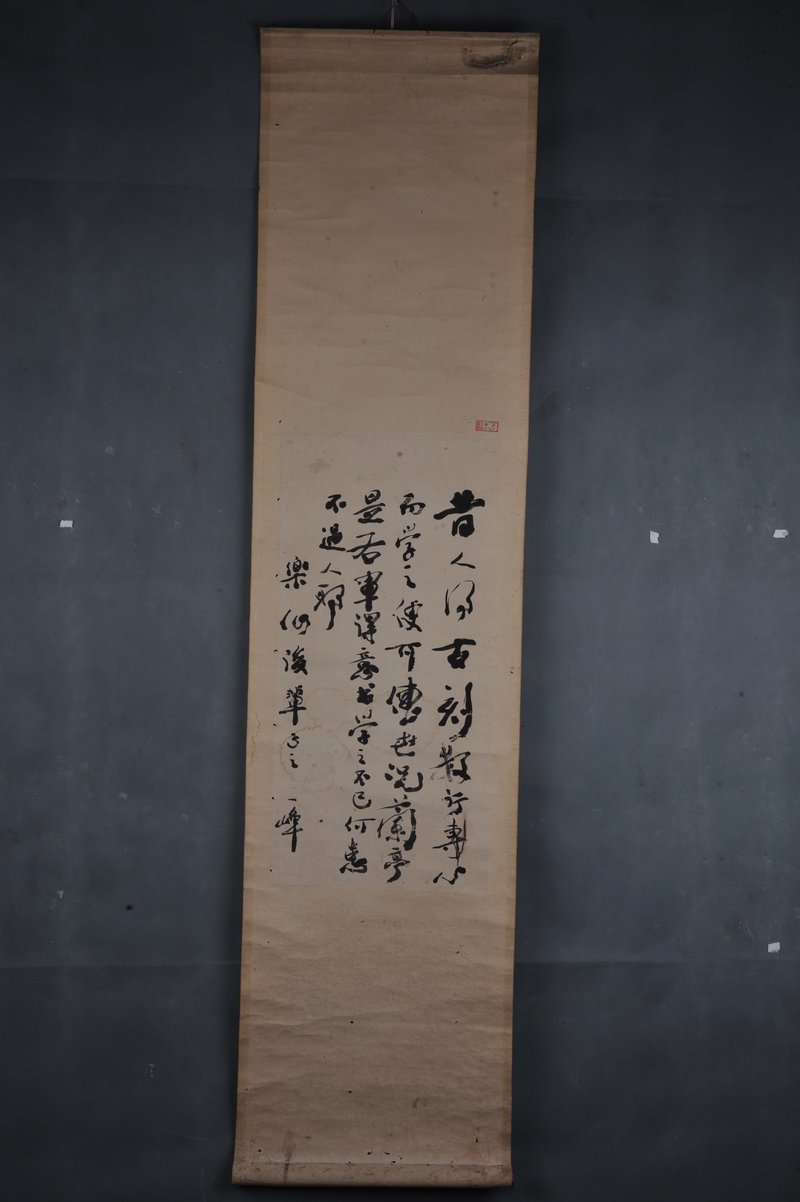 昔人得古刻数行專心
而学之便可傳世况蘭亭
是右軍得意書学之不已何患
不過人耶
樂仙後輩正之 一峰